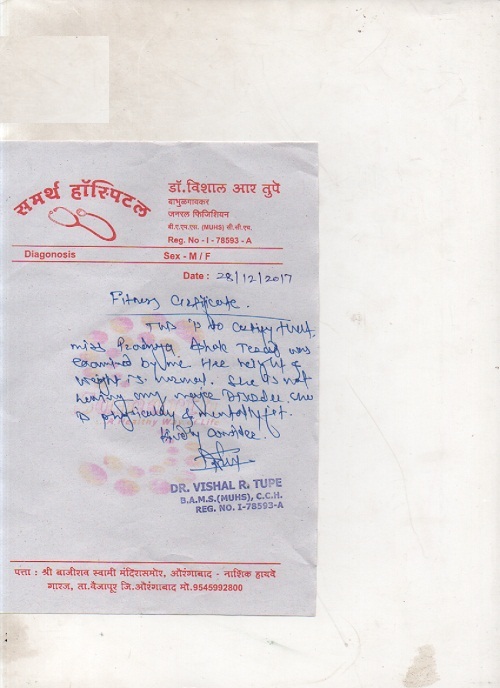 समर्थ हॉस्पिटल
डॉ.विशाल आर तुपे
बाभुळगावकर
जनरल फिजिशियन
बी.ए.एम.एस. (MUHS) सी.सी.एच.
Reg. No - I - 78593 - A
Diagonosis Sex - M / F
Date : 28/12/2017
Fitness Certificate.
This is to certify that
miss Pradnya Ashok was
examined by me. Her height &
weight is normal. She is not
having any major Disorder. She
is physically & mentally fit.
Kindly consider.
DR. VISHAL R. TUPE
B.A.M.S.(MUHS), C.C.H.
REG. NO. I-78593-A
पत्ता : श्री बाजीराव स्वामी मंदिरासमोर, औरंगाबाद - नाशिक हायवे
गारज, ता.वैजापूर जि.औरंगाबाद मो.9545992800